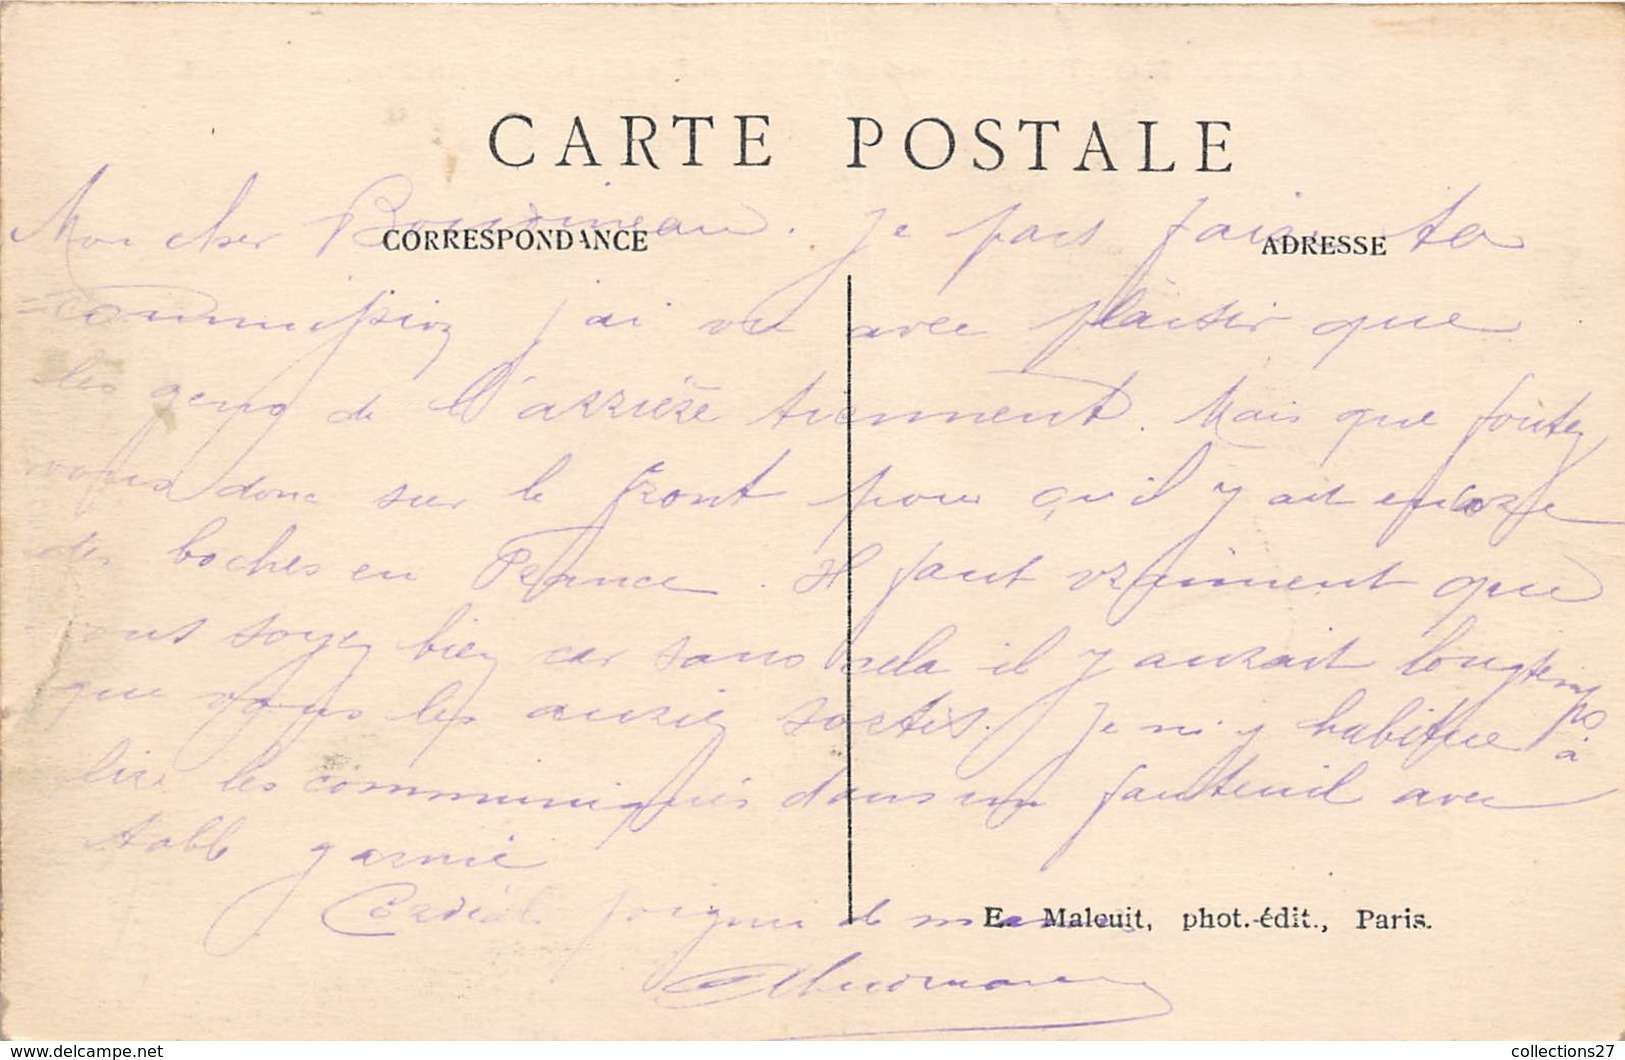 CARTE POSTALE
CORRESPONDANCE
ADRESSE
Mon cher . Je pars faire ta
commission j'ai vu avec plaisir que
les gens de l'arrière tiennent. Mais que foutez
vous donc sur le front pour qu'il y ait encore
des boches en France. Il faut vraiment que
vous soyez bien car sans cela il y aurait longtemps
que vous les auriez sortis. Je m'y habitue à
lire les communiqués dans un fauteuil avec
table garnie
Cordiale poignée de main
E. Maleuit, phot.-édit., Paris.
collections27
www.delcampe.net